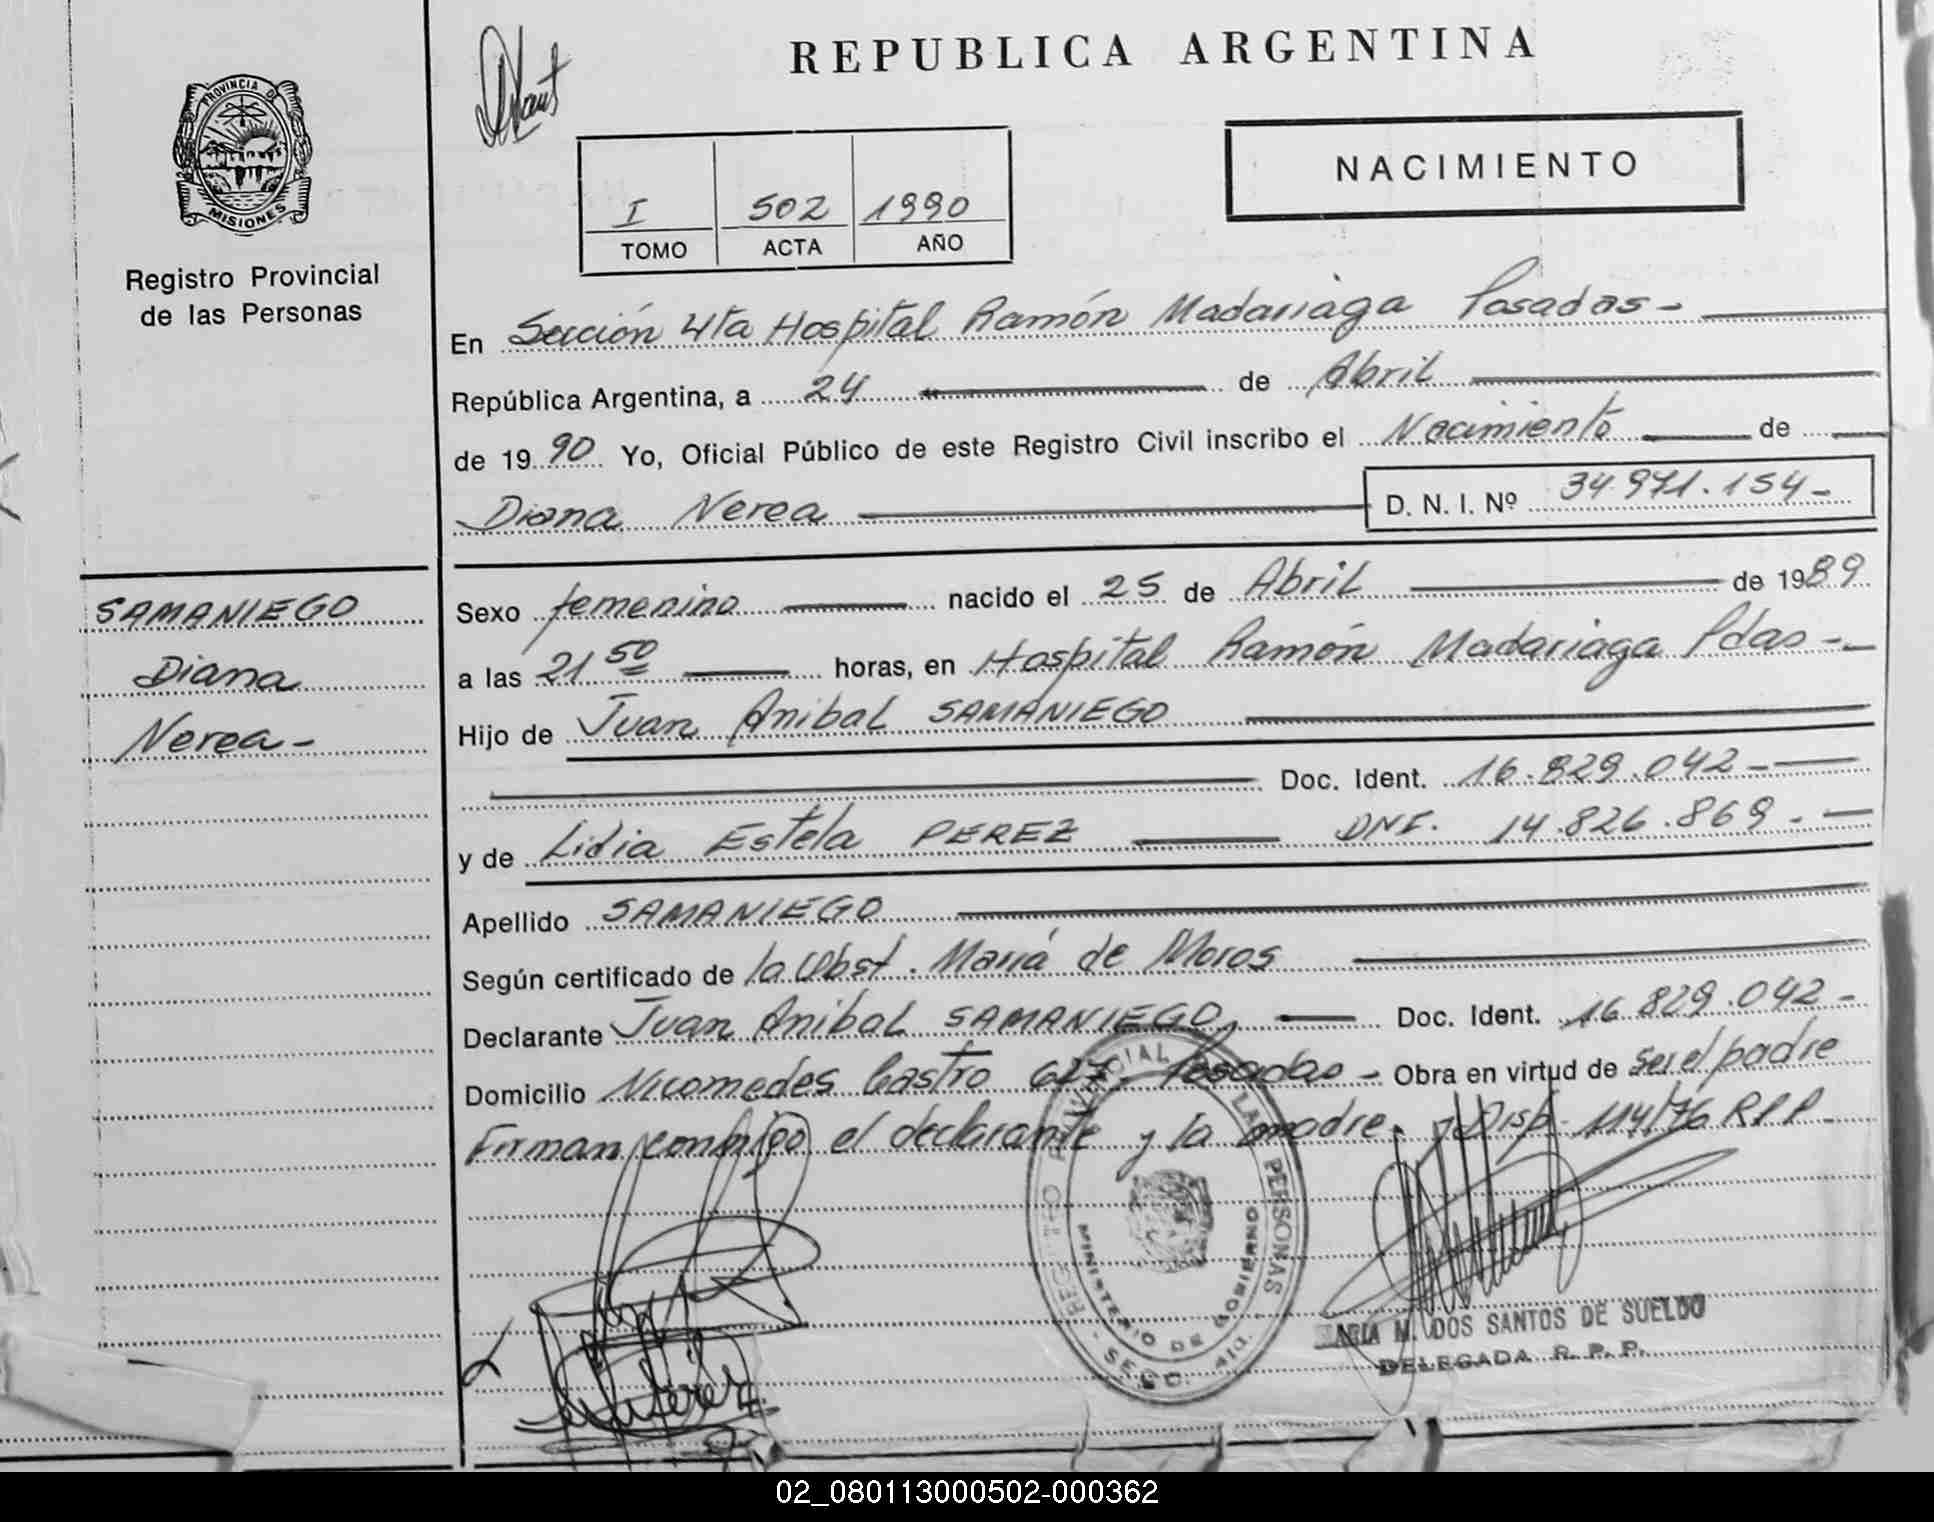 REPUBLICA ARGENTINA
PROVINCIA DE
MISIONES
Registro Provincial
de las Personas
I 502 1990
TOMO ACTA AÑO
NACIMIENTO
En Sección 4ta Hospital Ramón Madariaga Posadas-
República Argentina, a 24 de Abril
de 1990 Yo, Oficial Público de este Registro Civil inscribo el Nacimiento de
Diana Nerea D. N. I. Nº 34.971.154-
SAMANIEGO
Diana
Nerea-
Sexo femenino nacido el 25 de Abril de 1989
a las 21 50 horas, en Hospital Ramón Madariaga Pdas-
Hijo de Juan Anibal SAMANIEGO
Doc. Ident. 16.829.042-
y de Lidia Estela PEREZ DNI. 14.826.869.-
Apellido SAMANIEGO
Según certificado de la Obst. María de Moros
Declarante Juan Anibal SAMANIEGO Doc. Ident. 16.829.042-
Domicilio Nicomedes Castro 627, Posadas- Obra en virtud de ser el padre
Firman conmigo el declarante y la madre. Disp. 114/76 R.P.P.
REGISTRO PROVINCIAL LAS PERSONAS
MINISTERIO DE GOBIERNO
M. DOS SANTOS DE SUELDO
DELEGADA R. P. P.
02_080113000502-000362